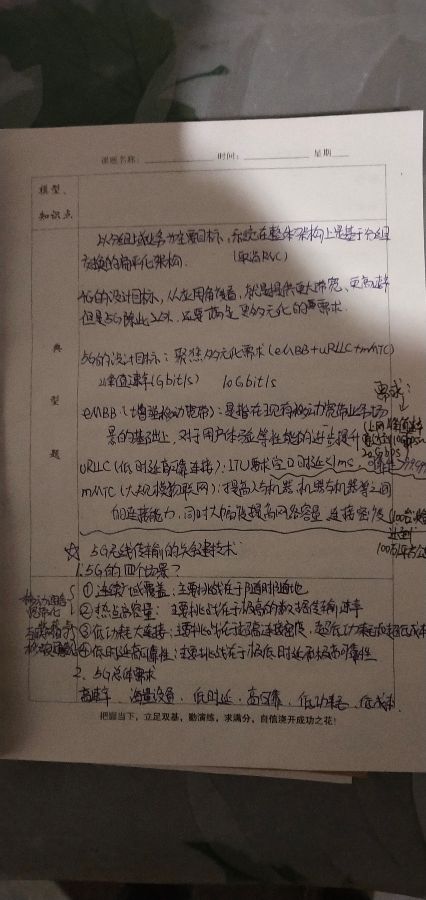 课题名称：　时间：　星期
模型、
知识点
以分组域业务为主要目标，系统在整体架构上是基于分组
交换的扁平化架构．（取消RNC）
4G的设计目标，从应用角度看，就是提供更大带宽、更高速率
但是5G除此之外，还要满足更多元化的需求．
5G的设计目标：聚焦多元化需求（eMBB+uRLLC+mMTC）
峰值速率(Gbit/s 10Gbit/s
需求：
典
型
题
eMBB（增强移动宽带）：是指在现有移动宽带业务场
景的基础上，对于用户体验等性能的进一步提升
20Gbps
uRLLC（低时延高可靠连接）：ITU要求空口时延<1ms
mMTC（大规模物联网）：提高人与机器，机器与机器等之间
的连接能力，同时大幅度提高网络容量 连接密度
☆ 5G无线传输的关键技术
1. 5G的四个场景？
① 连续广域覆盖：主要挑战在于随时随地
② 热点高容量：主要挑战在于极高的数据传输速率
③ 低功耗大连接：主要挑战在于超高连接密度，超低功耗和超低成本
④ 低时延高可靠性：主要挑战在于极低时延和极高可靠性
2．5G总体需求
高速率、海量设备、低时延、高可靠、低功耗、低成本．
把握当下，立足双基，勤演练，求满分，自信浇开成功之花！